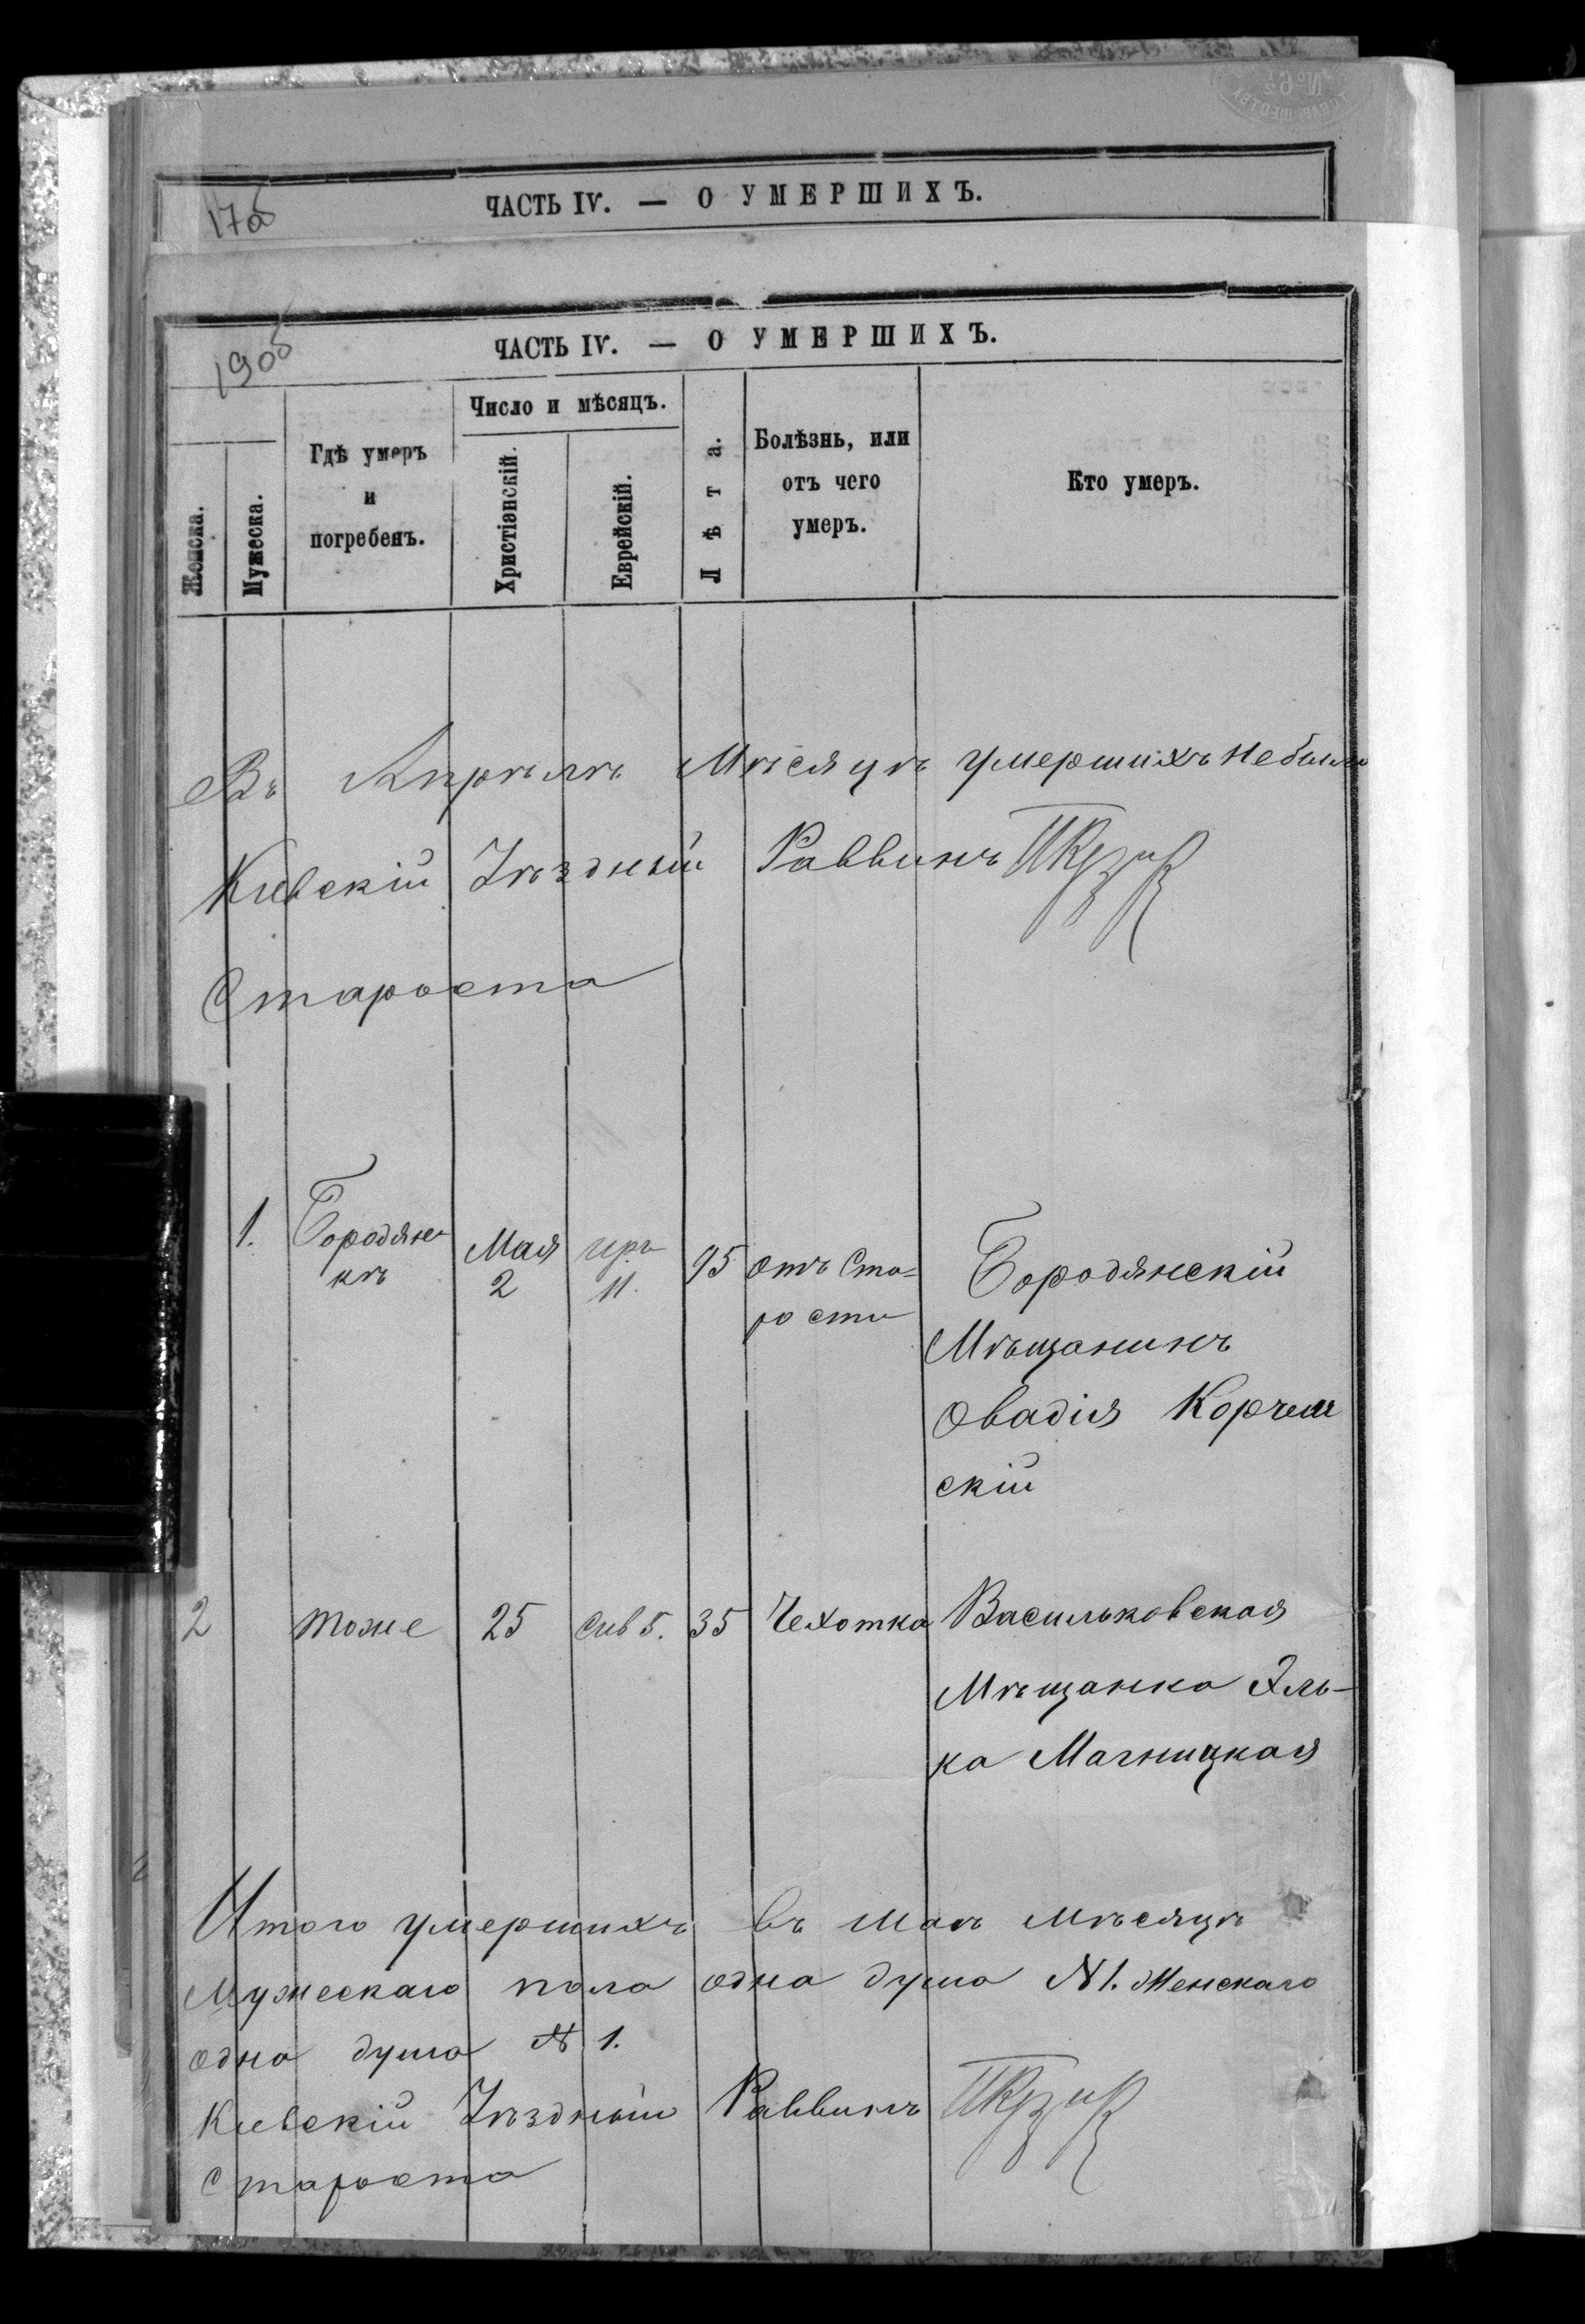 175
ЧАСТЬ IV. — О УМЕРШИХЪ.
190об
ЧАСТЬ IV. — О УМЕРШИХЪ.
Женска.
Мужеска.
Гдѣ умеръ
и
погребенъ.
Число и мѣсяцъ.
Христіанскій.
Еврейскій.
Лѣта.
Болѣзнь, или
отъ чего
умеръ.
Кто умеръ.
Въ Апрѣлѣ Мѣсяцѣ умершихъ небыло
Кіевскій Уѣздный Раввинъ
Староста
1. Бородян-
кѣ
Мая
2
иръ
11.
95
отъ Ста-
рости
Бородянскій
Мѣщанинъ
Овадія Корчем
скій
2 тоже 25 сив 5. 35 Чехотка Васильковская
Мѣщанка Эль-
ка Магницкая
Итого умершихъ въ маѣ мѣсяцѣ
Мужескаго пола одна душа №1. Женскаго
одна душа № 1.
Кіевскій Уѣздный Раввинъ
Староста